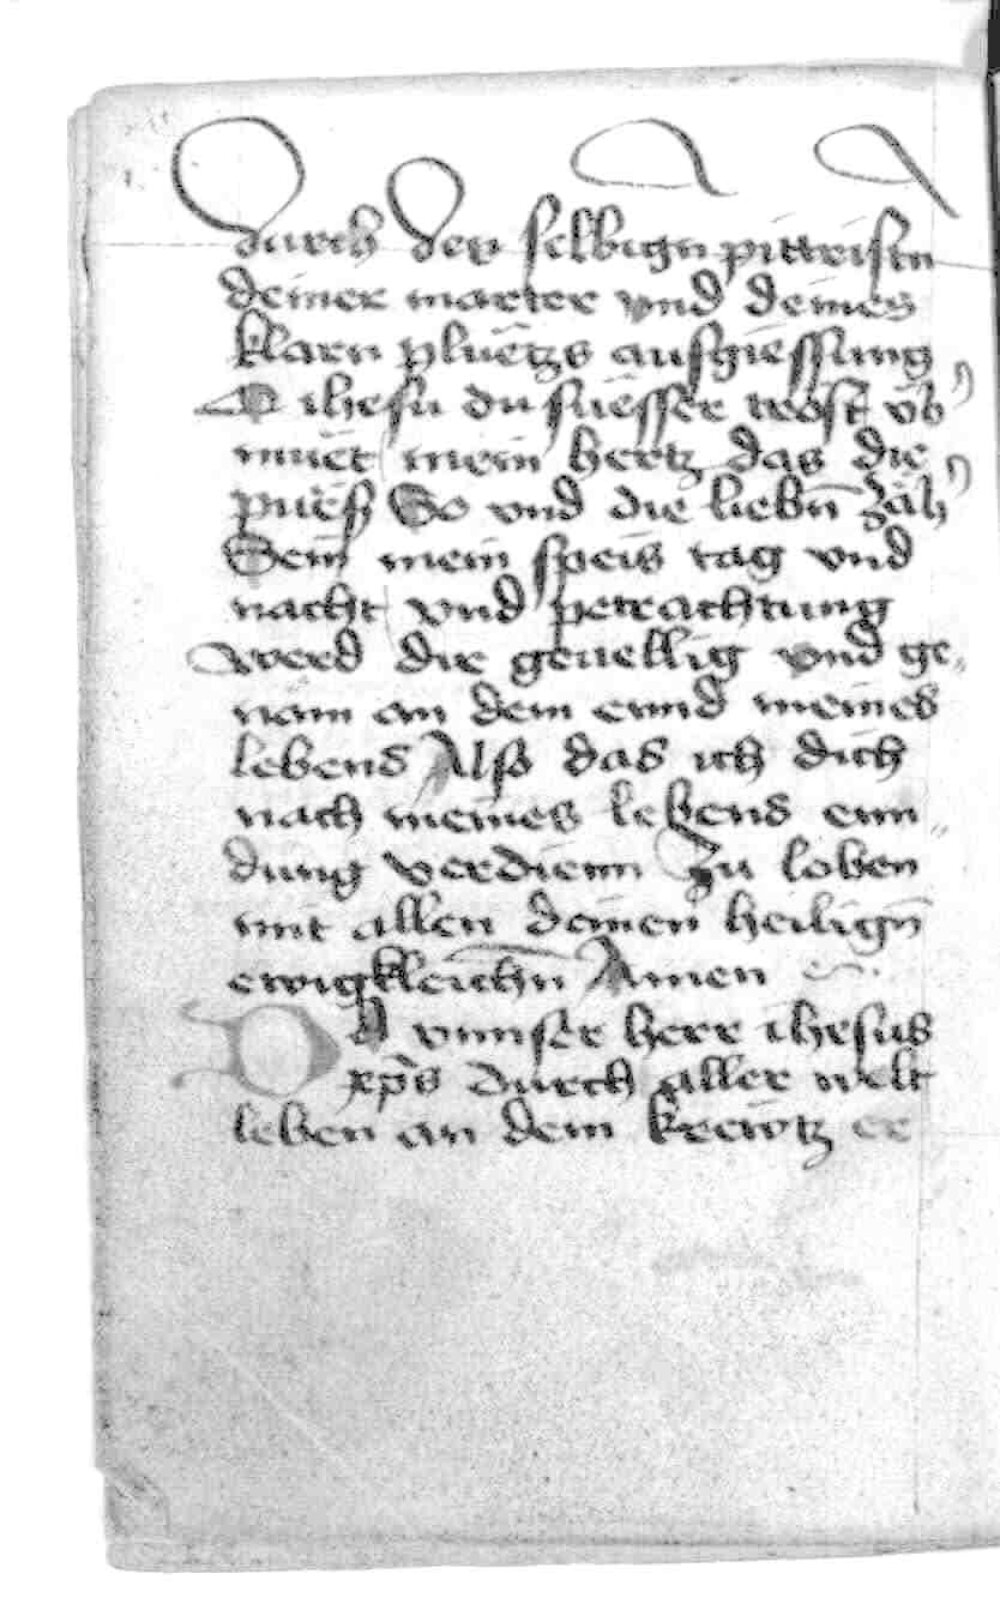 durch der selbign pittrisen
deiner marter vnd deines
klarn pluetzs ausgiessung
O ihesu du suesser trost vb'
muet mein hertz das die
pues So vnd die liebn̄ zäh'
Sein mein speis tag vnd
nacht vnd petrachtung
werd dir geuellig vnd ge„
nam an dem ennd meines
lebens Also das ich dich
nach meines lebens enn„
dung verdienn zu loben
mit allen deinen heilign̄
ewigkleichn̄ Amen
D A vnnser herr ihesus
xp̄s durch aller welt
leben an dem krewtz er